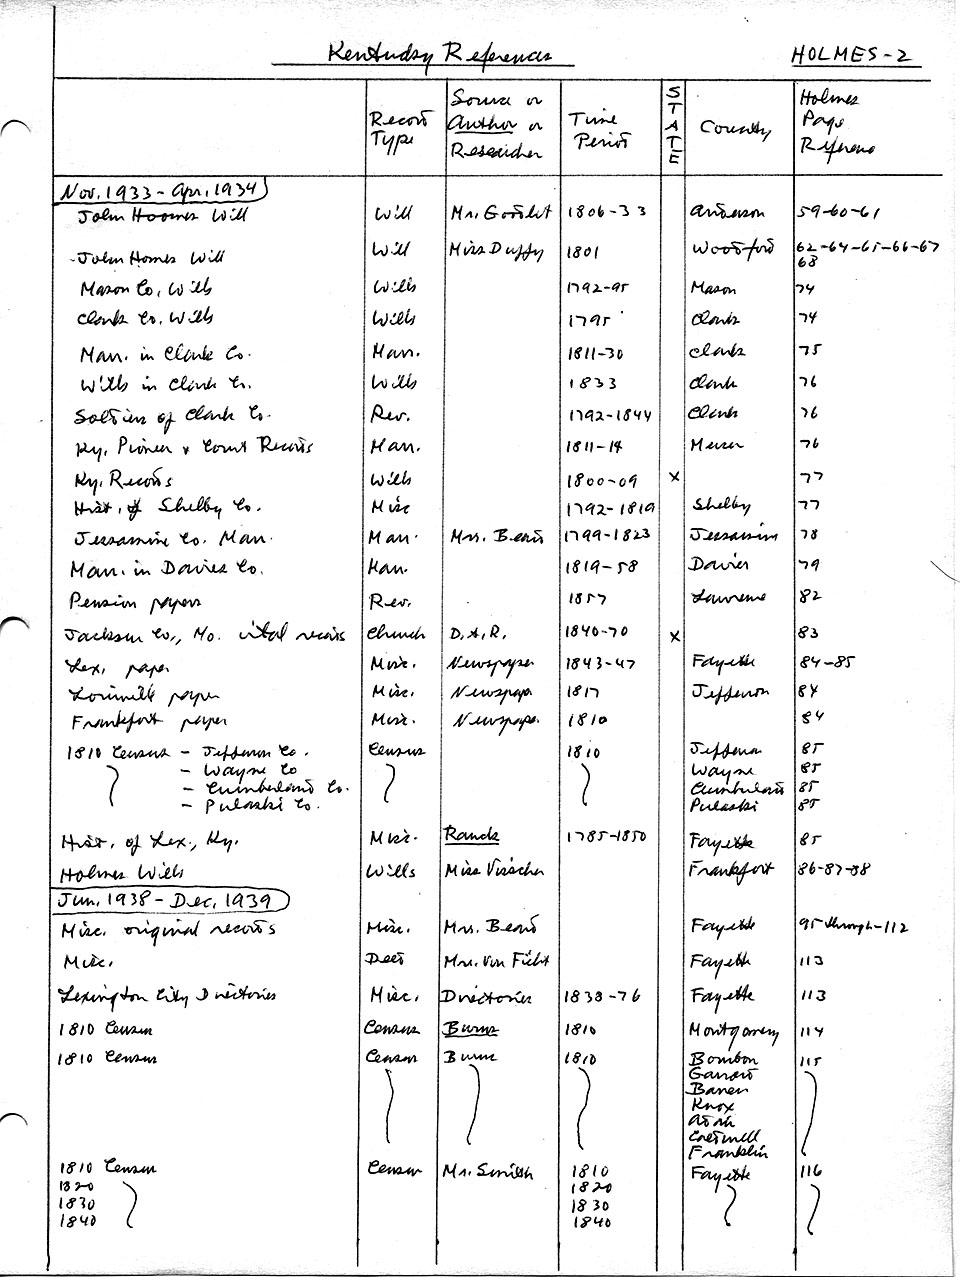 Kentucky References HOLMES-2
Record Type Source or Author or Researcher Time Period STATE County Holmes Page Reference
Nov. 1933 - Apr. 1934
John Hoomes Will Will Mr. Goodlet 1806-33 Anderson 59-60-61
John Homes Will Will Miss Duffy 1801 Woodford 62-64-65-66-67
68
Mason Co. Wills Wills 1792-95 Mason 74
Clark Co. Wills Wills 1795 Clark 74
Marr. in Clark Co. Marr. 1811-30 Clark 75
Wills in Clark Co. Wills 1833 Clark 76
Soldiers of Clark Co. Rev. 1792-1844 Clark 76
Ky. Pioneer & Court Records Marr. 1811-14 Mercer 76
Ky. Records Wills 1800-09 X 77
Hist. of Shelby Co. Misc 1792-1819 Shelby 77
Jessamine Co. Marr. Marr. Mrs. Beard 1799-1823 Jessamine 78
Marr. in Davies Co. Marr. 1819-58 Davies 79
Pension papers Rev. 1857 Lawrence 82
Jackson Co., Mo. vital records Church D.A.R. 1840-70 X 83
Lex. paper Misc. Newspaper 1843-47 Fayette 84-85
Louisville paper Misc. Newspaper 1817 Jefferson 84
Frankfort paper Misc. Newspaper 1810 84
1810 Census - Jefferson Co. Census 1810 Jefferson 85
- Wayne Co Wayne 85
- Cumberland Co. Cumberland 85
- Pulaski Co. Pulaski 85
Hist. of Lex., Ky. Misc. Ranck 1785-1850 Fayette 85
Holmes Wills Wills Miss Visscher Frankfort 86-87-88
Jun. 1938 - Dec. 1939
Misc. original records Misc. Mrs. Beard Fayette 95 through-112
Misc. Deed Mrs. Von Ficht Fayette 113
Lexington City Directories Misc. Directories 1838-76 Fayette 113
1810 Census Census Burns 1810 Montgomery 114
1810 Census Census Burns 1810 Bourbon 115
Garrard
Barren
Knox
Adair
Caldwell
Franklin
1810 Census Census Mr. Smith 1810 Fayette 116
1820 1820
1830 1830
1840 1840